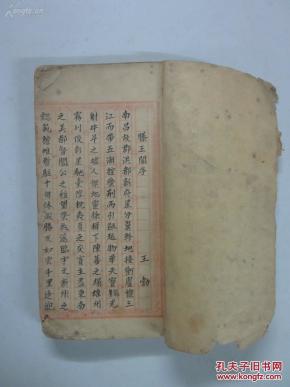 滕王閣序
王勃
南昌故郡洪都新府星分翼軫地接衡廬襟三
江而帶五湖控蠻荊而引甌越物華天寶龍光
射牛斗之墟人傑地靈徐孺下陳蕃之榻雄州
霧列俊彩星馳臺隍枕夷夏之交賓主盡東南
之美都督閻公之雅望棨戟遙臨宇文新州之
懿範襜帷暫駐十旬休暇勝友如雲千里逢迎
孔夫子旧书网